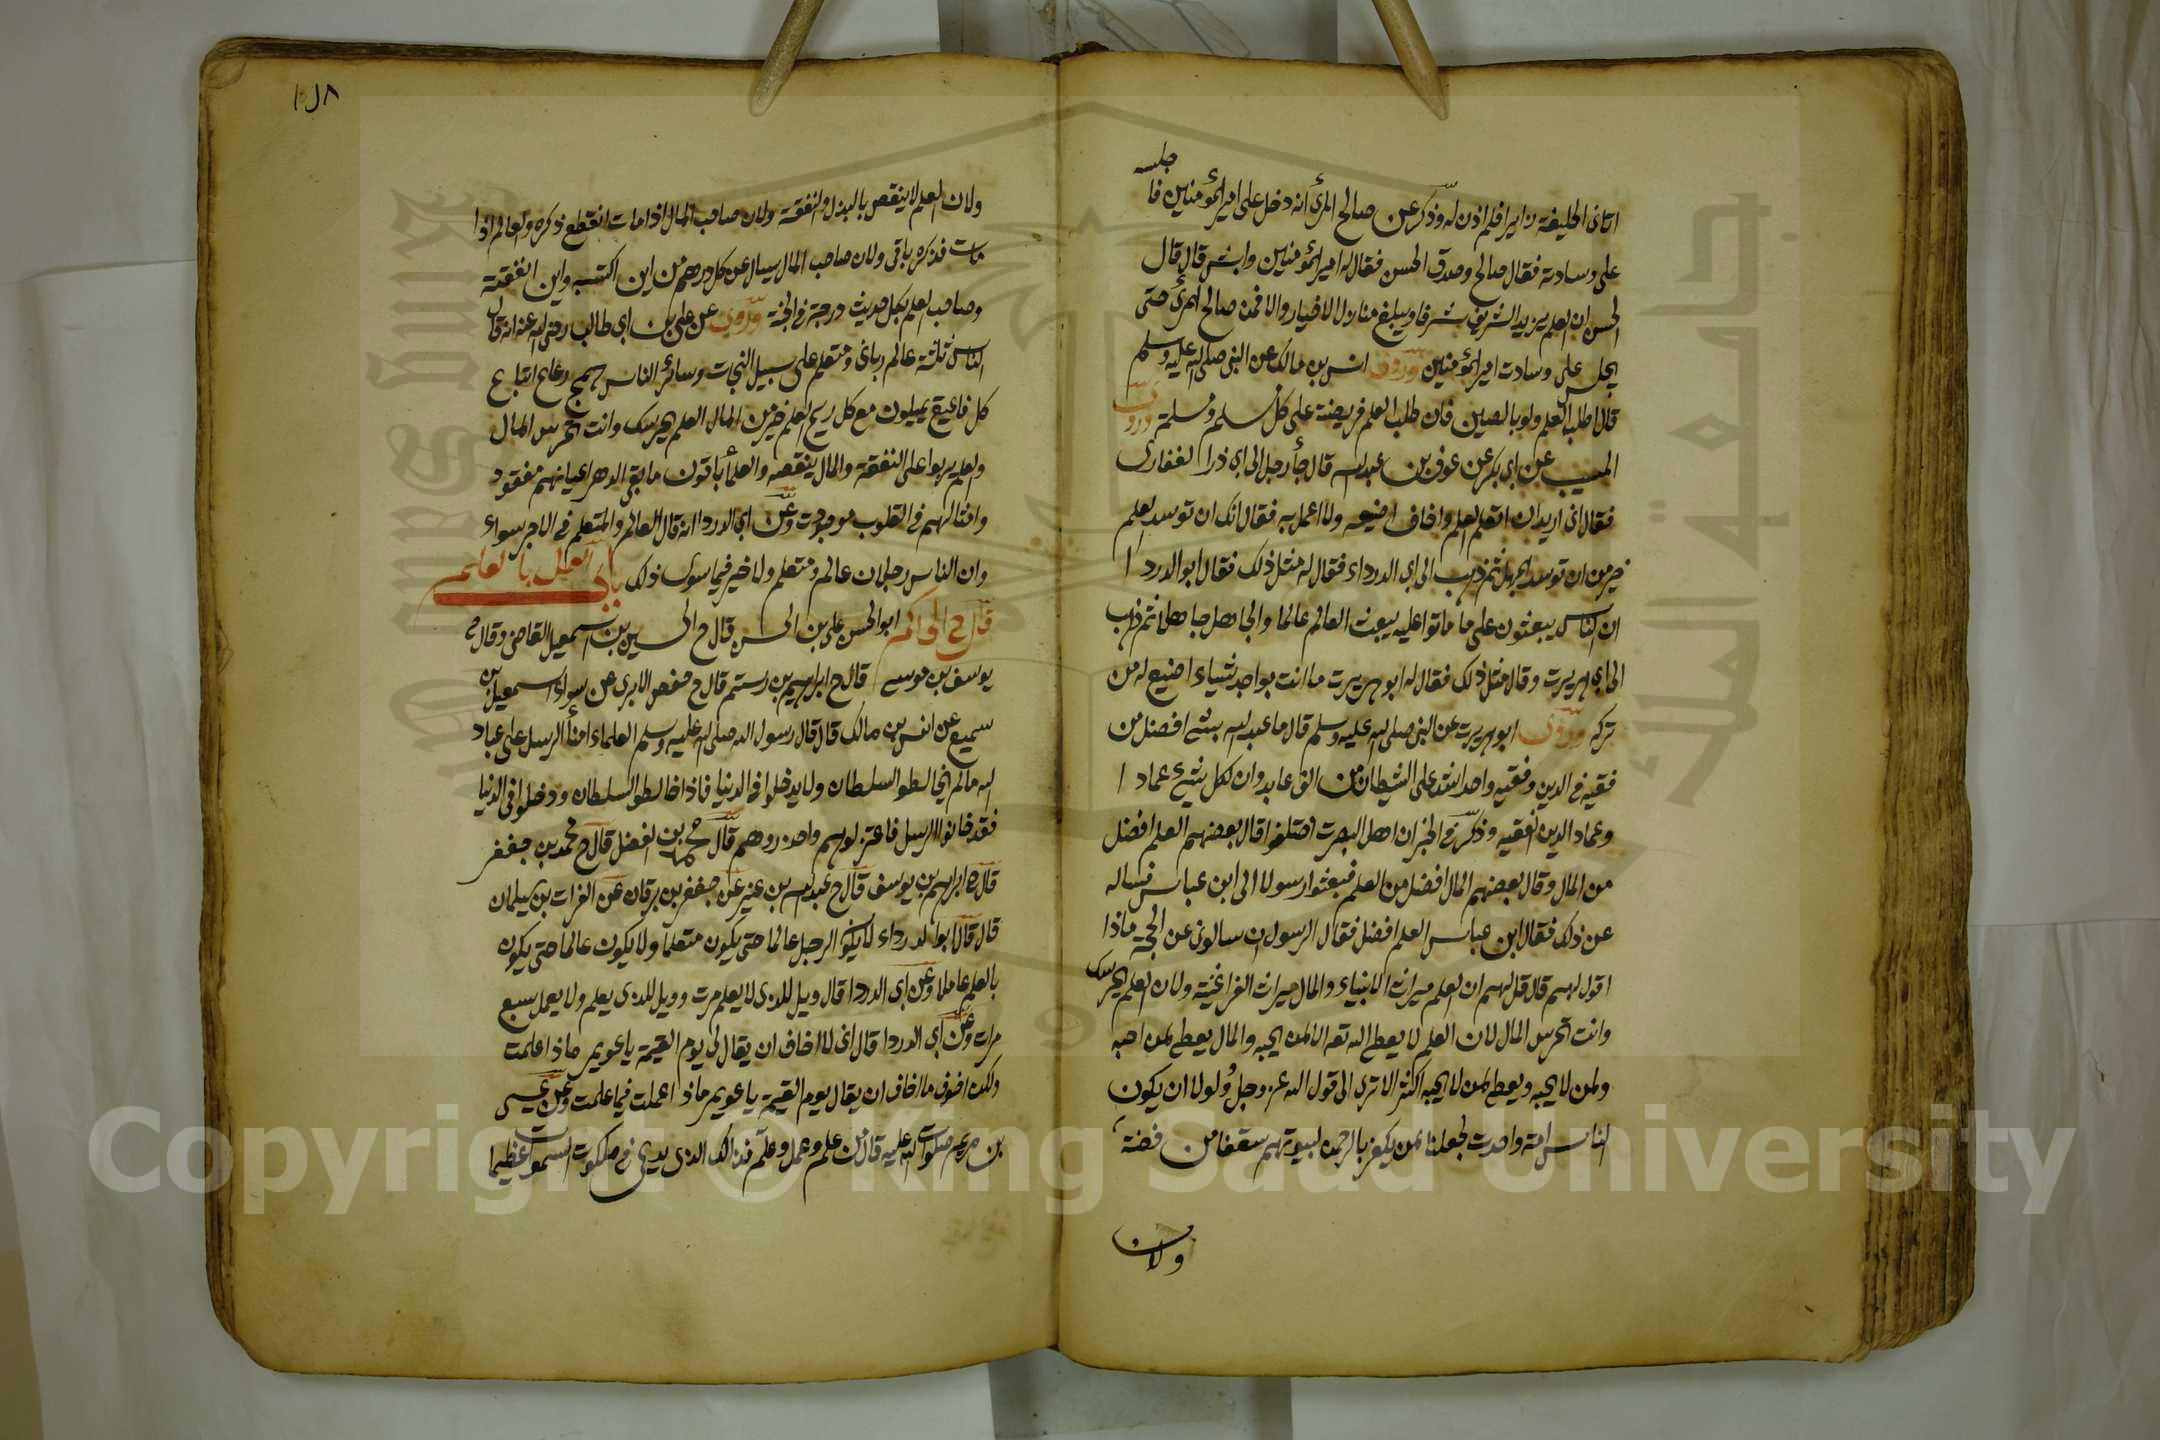 اتانى الخليفة زايرا فلم اذن له وذكر عن صالح المرئ انه دخل على امير المؤمنين فا جلسه
على وسادته فقال صالح وصدق الحسن فقال له امير المؤمنين وايش قال قال
الحسن ان العلم يزيد الشريف شرفا ويبلغ منازل الاخيار والا فمن صالح المرئ حتى
يجلس على وسادت امير المؤمنين وروى انس بن مالك عن النبى صلى الله عليه وسلم
قال اطلب العلم ولو بالصين فان طلب العلم فريضة على كل مسلم ومسلمة وروى
المسيب عن ابى بكر عن عوف بن عبدالله قال جاء رجل الى ابى ذر ا لغفارى
فقال انى اريد ان اتعلم العلم واخاف اضيعه ولا اعمل به فقال انك ان توسد لعلم
خير من ان توسد الجهل ثم ذهب الى ابى الدرداء فقال له مثل ذلك فقال ابو الدردا
ان الناس يبعثون على ما ماتوا عليه يبعث العالم عالما والجاهل جاهلا ثم ذهب
الى ابى هريرت وقال مثل ذلك فقال له ابو هريرت ما انت بواجد شياء اضيع له من
تركه وروى ابو هريرت عن النبى صلى الله عليه وسلم قال ما عبد الله بشئ افضل من
فقيه فى الدين وفقيه واحد اشد على الشيطان من الف عابد وان لكل شئ عمادا
وعماد الدين الفقيه وذكر فى الخبر ان اهل البصرت اختلفوا قال بعضهم العلم افضل
من المال وقال بعضهم المال افضل من العلم فبعثوا رسولا الى ابن عباس فساله
عن ذلك فقال ابن عباس العلم افضل فقال الرسول ان سالونى عن الحجة ماذا
اقول لهم قال قل لهم ان العلم ميراث الانبياء والمال ميراث الفراعنة ولان العلم يحرسك
وانت تحرس المال لان العلم لا يعطى الله تعه الا لمن يحبه والمال يعطى لمن احبه
ولمن لا يحبه ويعطى لمن لا يحبه اكثر الا ترى الى قول الله عز وجل ولولا ان يكون
الناس امة واحدت لجعلنا لمن يكفر بالرحمن لبيوتهم سقفا من فضة
ولان
١٨
ولان العلم لا ينقص بالبذل والنفقة ولان صاحب المال اذا مات انقطع ذكره والعالم اذا
مات فذكره باقى ولان صاحب المال يسال عن كل درهم من اين اكتسبه واين انفقته
وصاحب العلم بكل حديث درجة فى الجنة وروى عن على بن ابى طالب رضى الله عنه انه قال
الناس ثلثة عالم ربانى ومتعلم على سبيل النجات وسائر الناس همج رعاع اتباع
كل ناعق يميلون مع كل ريح العلم خير من المال العلم يحرسك وانت تحرس المال
والعلم يربوا على النفقة والمال ينقصه والعلمأ باقون ما بقى الدهر اعيانهم مفقود
وامثالهم فى القلوب موجودت وعن ابى الدردا انه قال العالم والمتعلم فى الاجر سواء
وان الناس رجلان عالم ومتعلم ولا خير فيما سوى ذلك باب العمل بالعلم
قال ح الحاكم ابو الحسن على بن الحسن قال ح الحسين بن اسمعيل القاضى وقال ح
يوسف بن موسى قال ح ابراهيم بن رستم قال ح حفص الابرى عن اسمعيل بن
سميع عن انس بن مالك قال قال رسول الله صلى الله عليه وسلم العلماء امنأ الرسل على عباد
الله مالم يخالطو السلطان ولا يدخلوا فى الدنيا فاذا خالطو السلطان ودخلوا فى الدنيا
فقد خانوا الرسل فاعتزلوهم واحذروهم قال ح محمد بن الفضل قال ح محمد بن جعفر
قال ح ابراهيم بن يوسف قال ح عبدالله بن عن جعفر بن برقان عن الفرات بن سليمان
قال قال ابو الدرداء لا يكون الرجل عالما حتى يكون متعلما ولا يكون عالما حتى يكون
بالعلم عاملا وعن ابى الدردا قال ويل للذى لا يعلم مرت وويل للذى يعلم ولا يعمل سبع
مرات وعن ابى الدردا قال انى لا اخاف ان يقال لى يوم القيمة يا عويمر ماذا علمت
ولكن اخوف ما اخاف ان يقال يوم القيمة يا عويمر ماذا عملت فيما علمت وعن عيسى
بن مريم صلوات الله عليه قال من علم وعمل وعلم فذالك الذى يدعى فى ملكوت السموات عظيما
جامعة الملك سعود
King Saud University
1957
Copyright © King Saud University